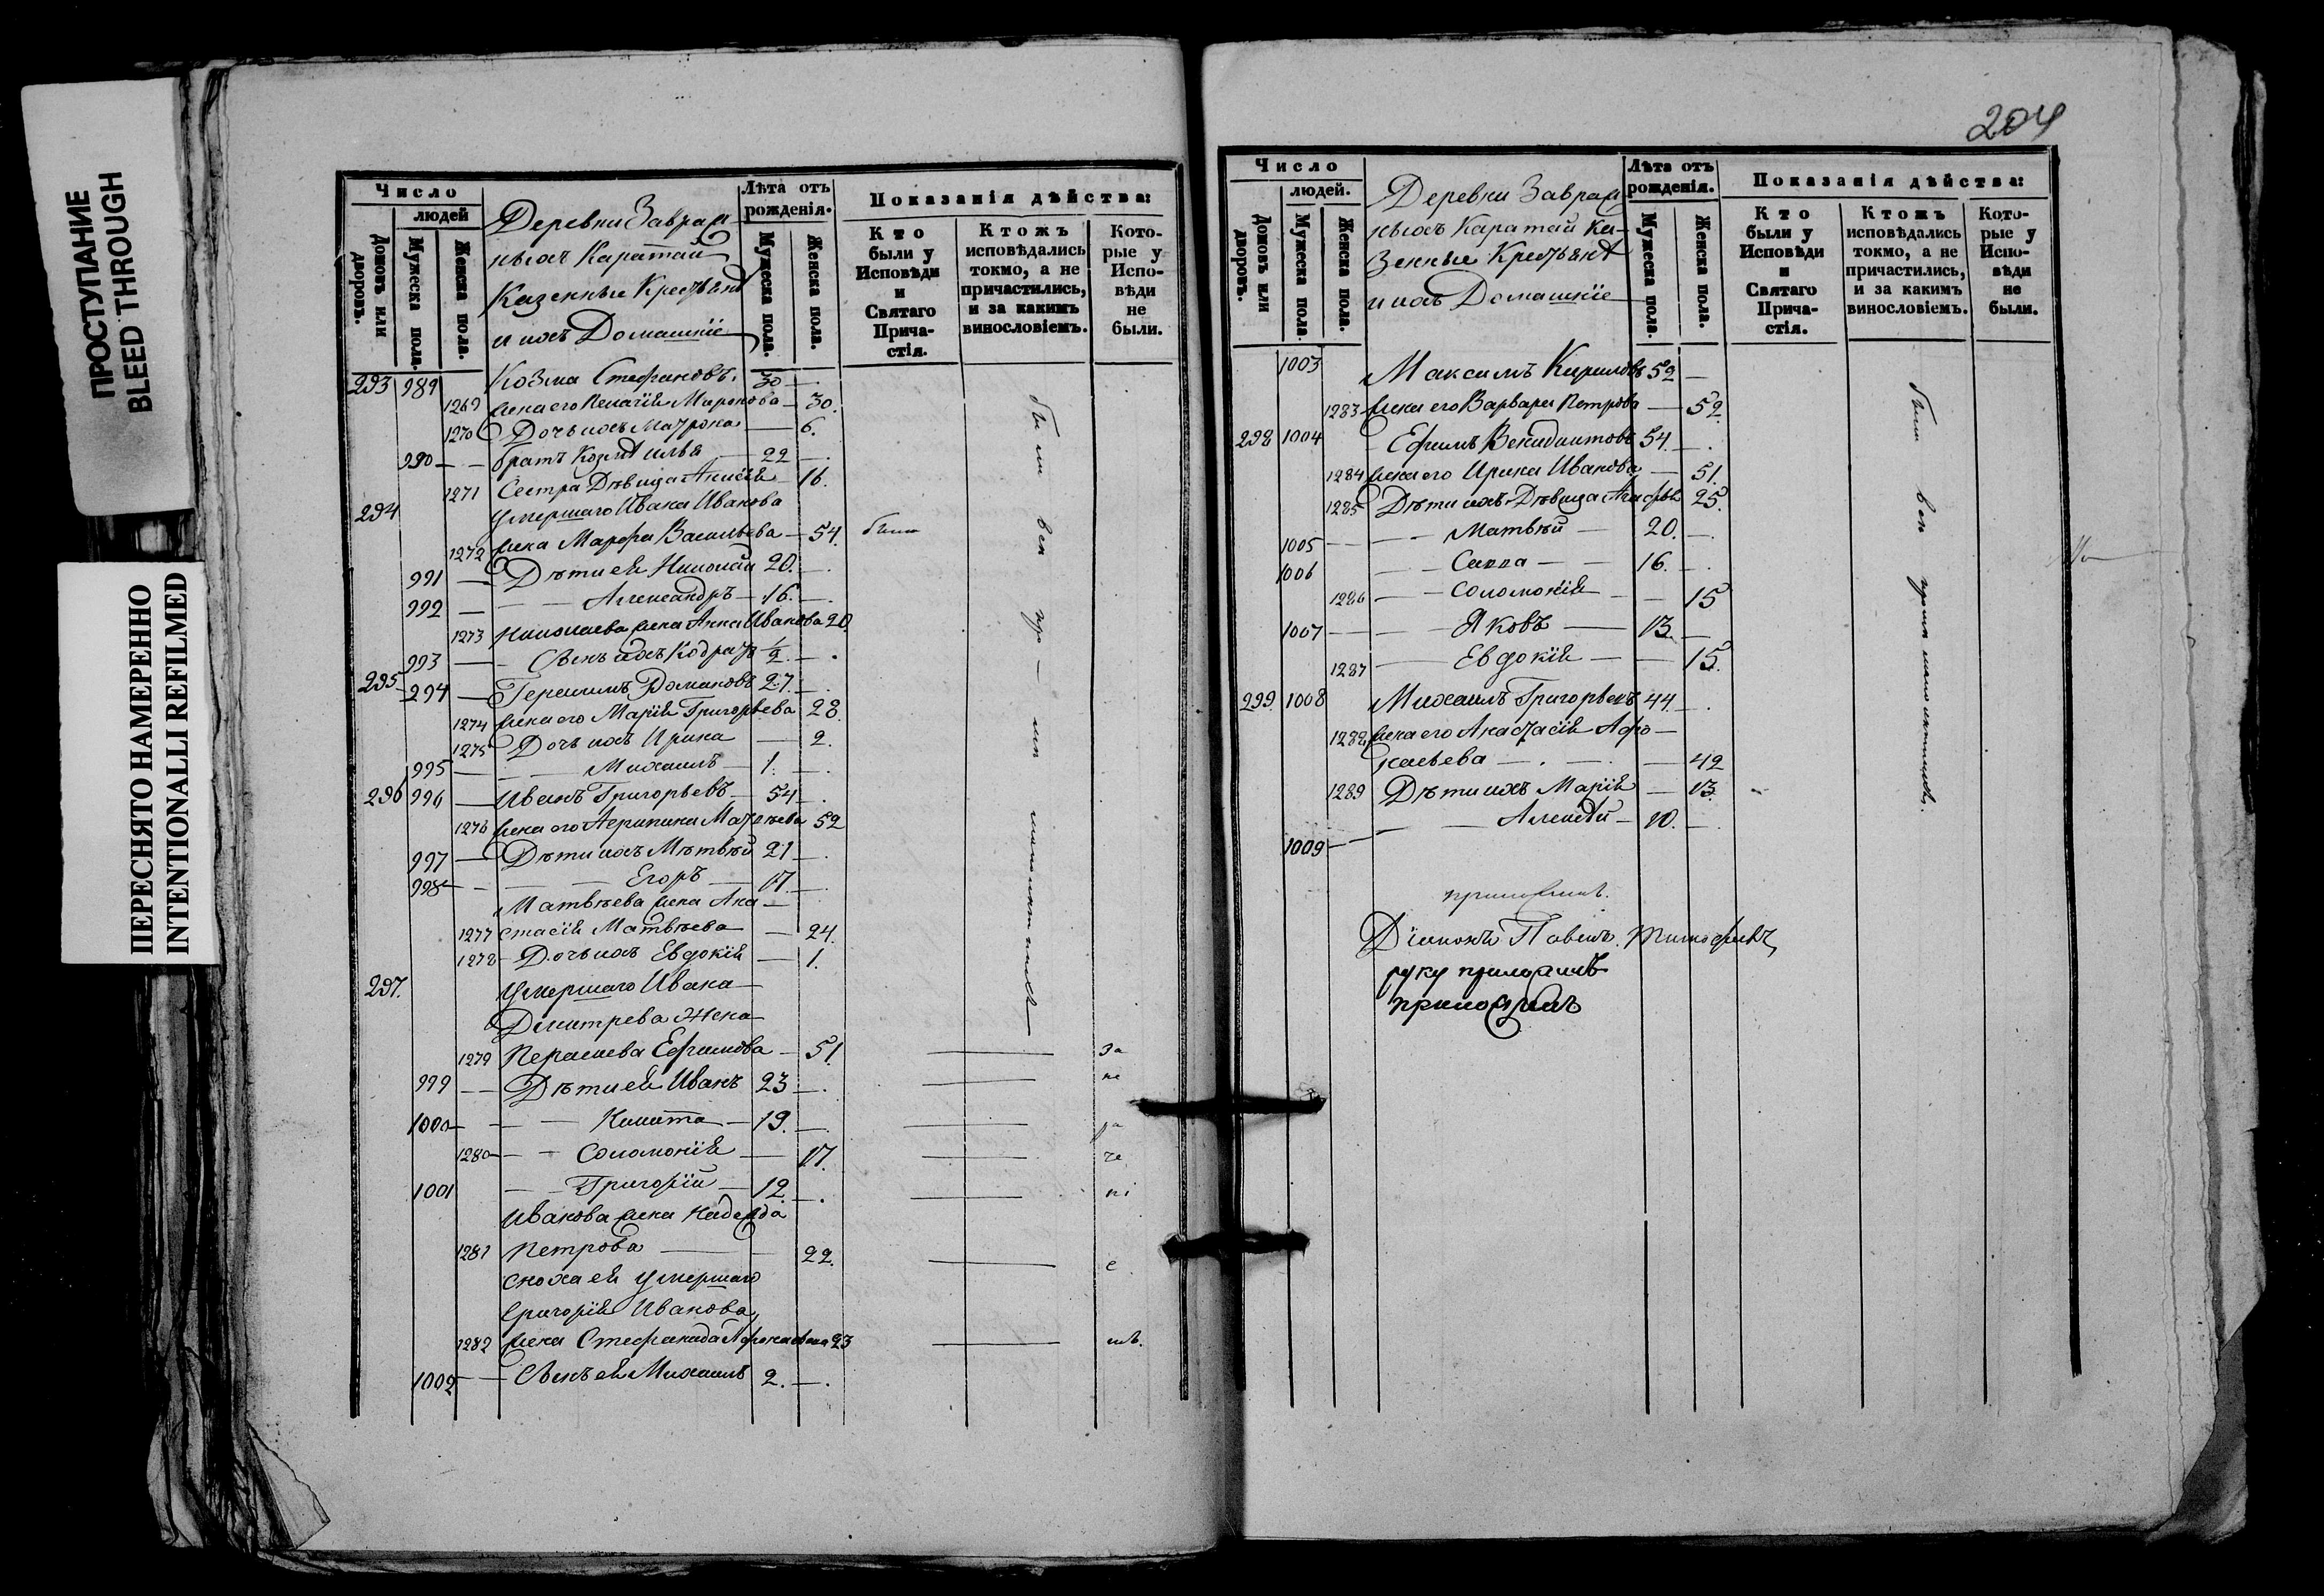 ПРОСТУПАНИЕ
BLEED THROUGH
ПЕРЕСНЯТО НАМЕРЕННО
INTENTIONALLI REFILMED
Число
людей
Домовъ или дворовъ.
Мужеска пола.
Женска пола.
Деревни Заврам-
ныхъ Каратай
Казенные Крестьянѣ
и ихъ Домашніе
Лѣта отъ рожденія.
Мужеска пола.
Женска пола.
Показанія дѣйства:
Кто были у Исповѣди и Святаго Прича-стія.
Ктожъ исповѣдались токмо, а не причастились, и за какимъ винословіемъ.
Кото-рые у Испо-вѣди не были.
293 989 Козма Стефановъ. 30 —
1269 жена его Пелагія Миронова — 30.
1270 Дочь ихъ Матрона — 6.
990 — братъ Козмѣ Илья — 22 —
1271 Сестра Дѣвица Анисія — 16.
294 Умершаго Ивана Иванова
1272 жена Марфа Васильева — 54. были
991 — Дѣти ея Николай 20. —
992 — Александръ — 16. —
1273 Николаева жена Анна Иванова 20.
993 — Сынъ ихъ Кодратъ 1/2 —
295 994 — Герасимъ Домановъ 27. —
1274 жена его Марія Григорьева 28.
1275 Дочь ихъ Ирина — 2.
995 — Михаилъ — 1. —
296 996 — Иванъ Григорьевъ — 54 —
1276 жена его Агрипина Матвѣева 52
997 — Дѣти ихъ Матвѣй 21 —
998 — Егоръ — 17. —
Матвѣева жена Ана —
1277 стасія Матвѣева — 24.
1278 Дочь ихъ Евдокія — 1.
297. Умершаго Ивана —
Дмитрева Жена
1279 Ефимова — 51
999 — Дѣти ея Иванъ 23 —
1000 — Никита — 19. —
1280 — Соломонія — 17.
1001 — Григорій — 12 —
Иванова жена Надежда
1281 Петрова — 22.
сноха ея умершаго
Григорія Иванова
1282 жена Стефанида Афонасьева 23
1002 — Сынъ ея Михаилъ 2. —
204
Число
людей.
Домовъ или дворовъ.
Мужеска пола.
Женска пола.
Деревни Заврам
ныхъ Каратай Ка-
зенные Крестьянѣ
и ихъ Домашніе
Лѣта отъ рожденія.
Мужеска пола.
Женска пола.
Показанія дѣйства:
Кто были у Исповѣди и Святаго Прича-стія.
Ктожъ исповѣдались токмо, а не причастились, и за какимъ винословіемъ.
Кото-рые у Испо-вѣди не были.
1003 Максимъ Кириловъ 52 —
1283 жена его Варвара Петрова — 52
298 1004 Ефимъ Венидиктовъ 54. —
1284 жена его Ирина Иванова — 51.
1285 Дѣти ихъ Дѣвица Агафья 25.
1005 — Матвѣй — 20. —
1006 — Савва — 16. —
1286 — Соломонія — 15
1007 — Яковъ — 13. —
1287 — Евдокія — 15.
299. 1008 Михаилъ Григорьевъ 44. —
1288 жена его Анастасія Афо —
насьева — 42
1289 Дѣти ихъ Марія — 13.
1009 — Алексѣй — 10. —
приложилъ.
Діаконъ Павелъ Тимофѣевъ
руку приложилъ
приложилъ